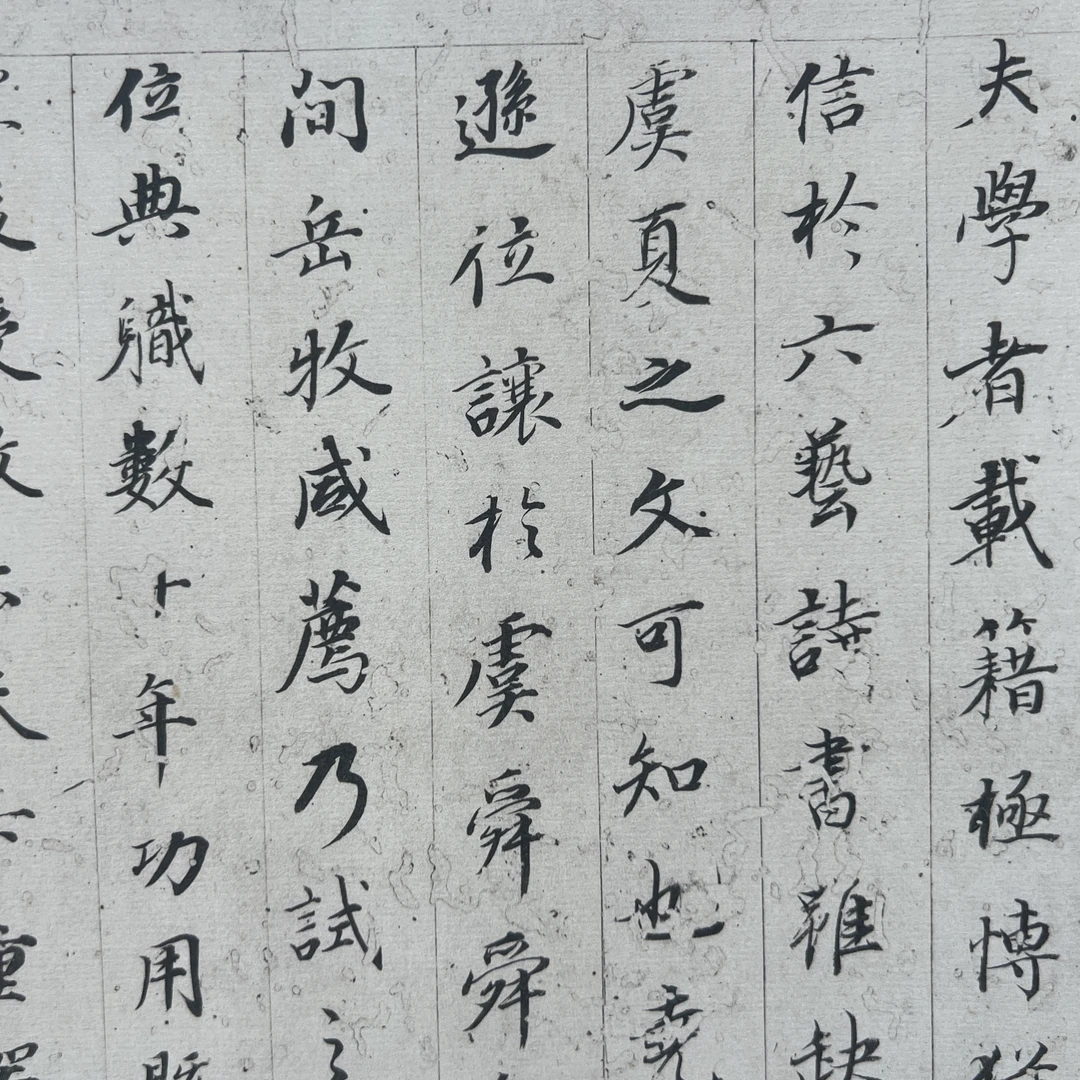 夫學者載籍極博猶
信於六藝詩書雖缺
虞夏之文可知也堯
遜位讓於虞舜舜
間岳牧咸薦乃試之
位典職數十年功用既